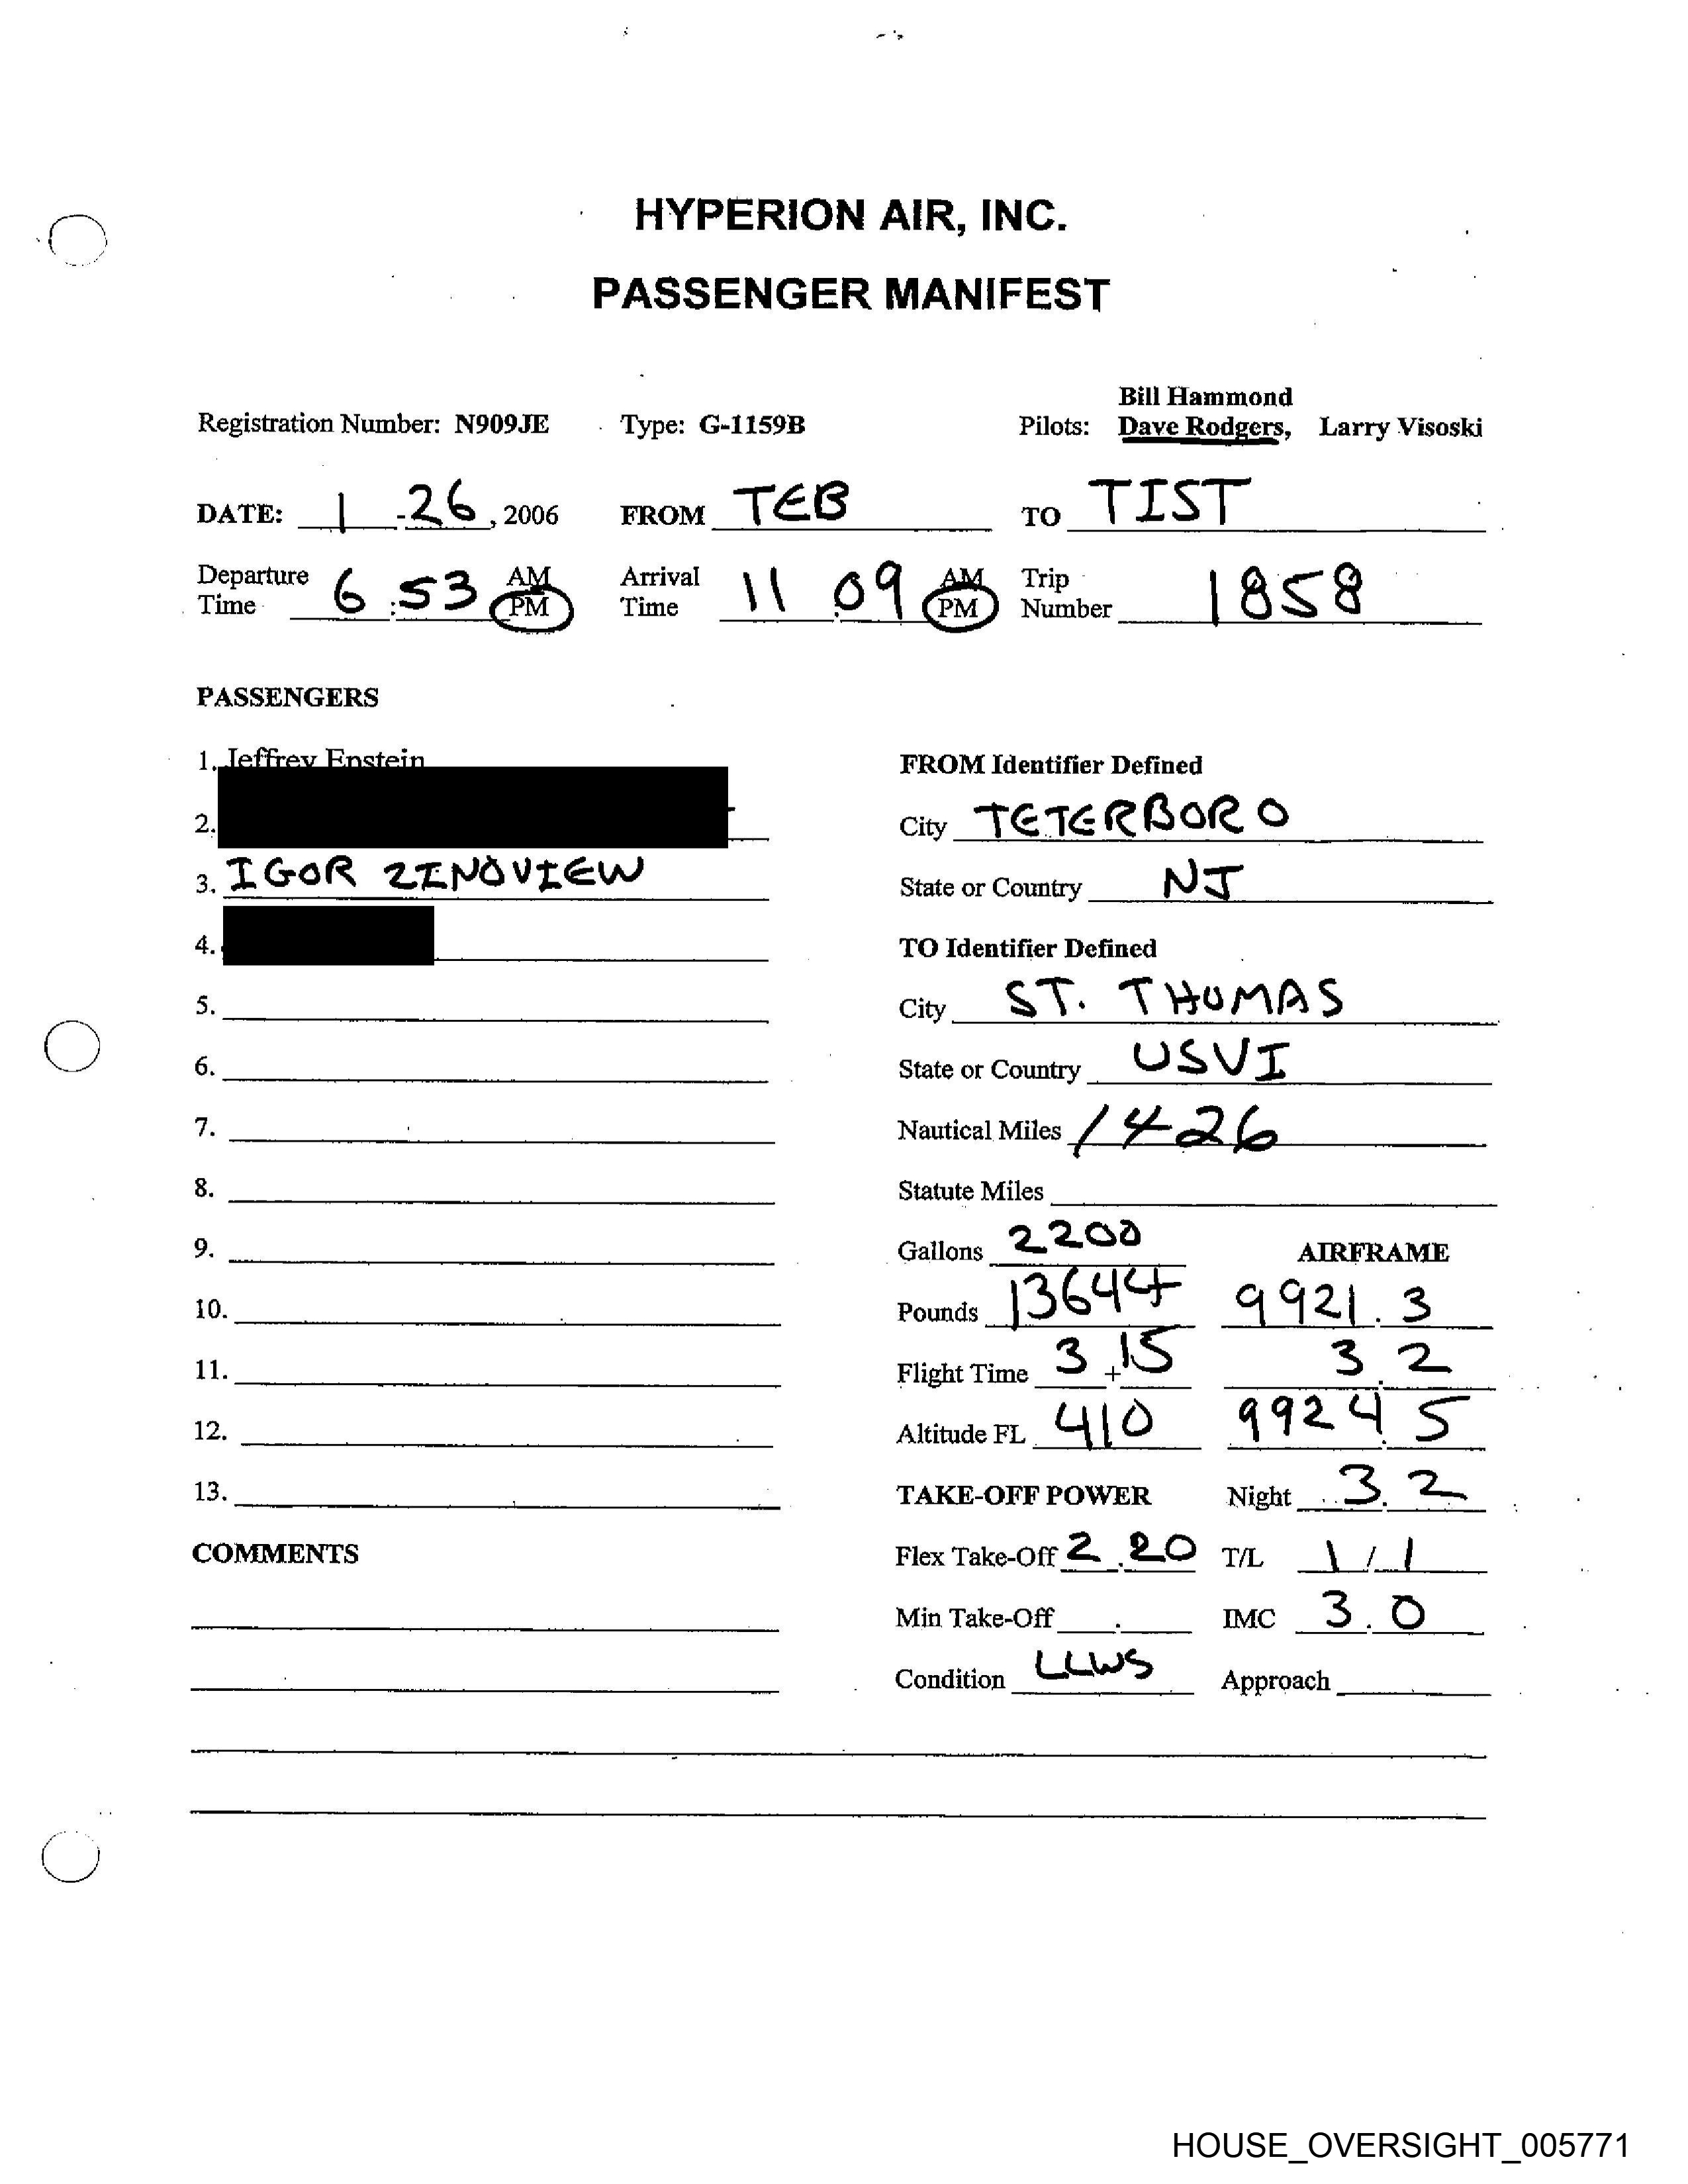 HYPERION AIR, INC.
PASSENGER MANIFEST
Bill Hammond
Registration Number: N909JE Type: G-1159B Pilots: Dave Rodgers, Larry Visoski
DATE: 1 - 26, 2006 FROM TEB TO TIST
Departure Time 6:53 AM PM Arrival Time 11:09 AM PM Trip Number 1858
PASSENGERS
1. Jeffrey Epstein
FROM Identifier Defined
2.
City TETERBORO
3. IGOR ZINOVIEW
State or Country NJ
4.
TO Identifier Defined
5.
City ST. THOMAS
6.
State or Country USVI
7.
Nautical Miles 1426
8.
Statute Miles
9.
Gallons 2200 AIRFRAME
10.
Pounds 13644 9921.3
11.
Flight Time 3+15 3.2
12.
Altitude FL 410 9924.5
13.
TAKE-OFF POWER Night 3.2
COMMENTS
Flex Take-Off 2.20 T/L 1/1
Min Take-Off . IMC 3.0
Condition LLWS Approach
HOUSE_OVERSIGHT_005771